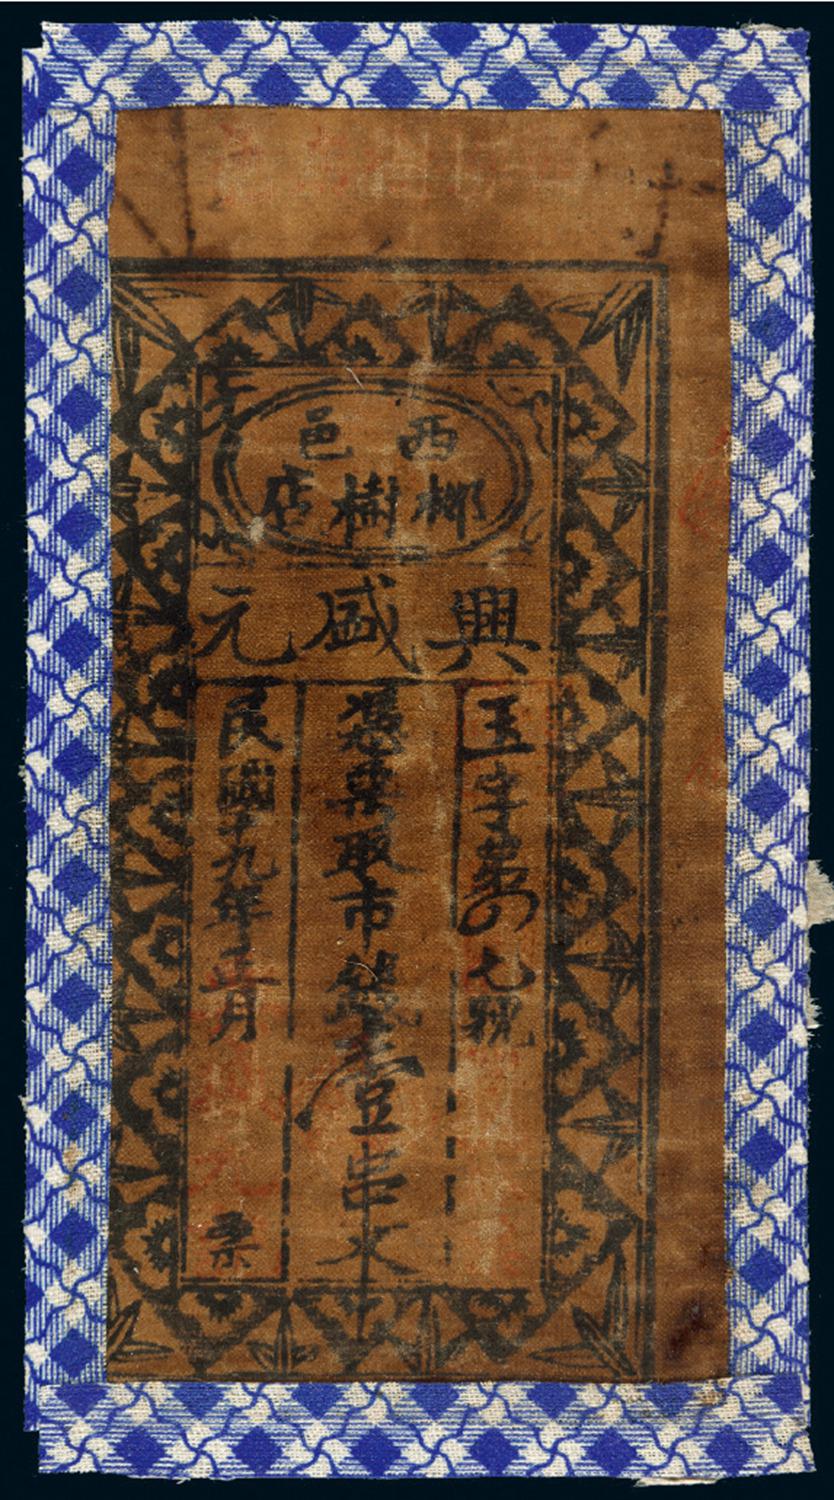 西邑
柳樹店
興盛元
玉字第七號
憑票取市錢壹串文
民國十九年正月 票